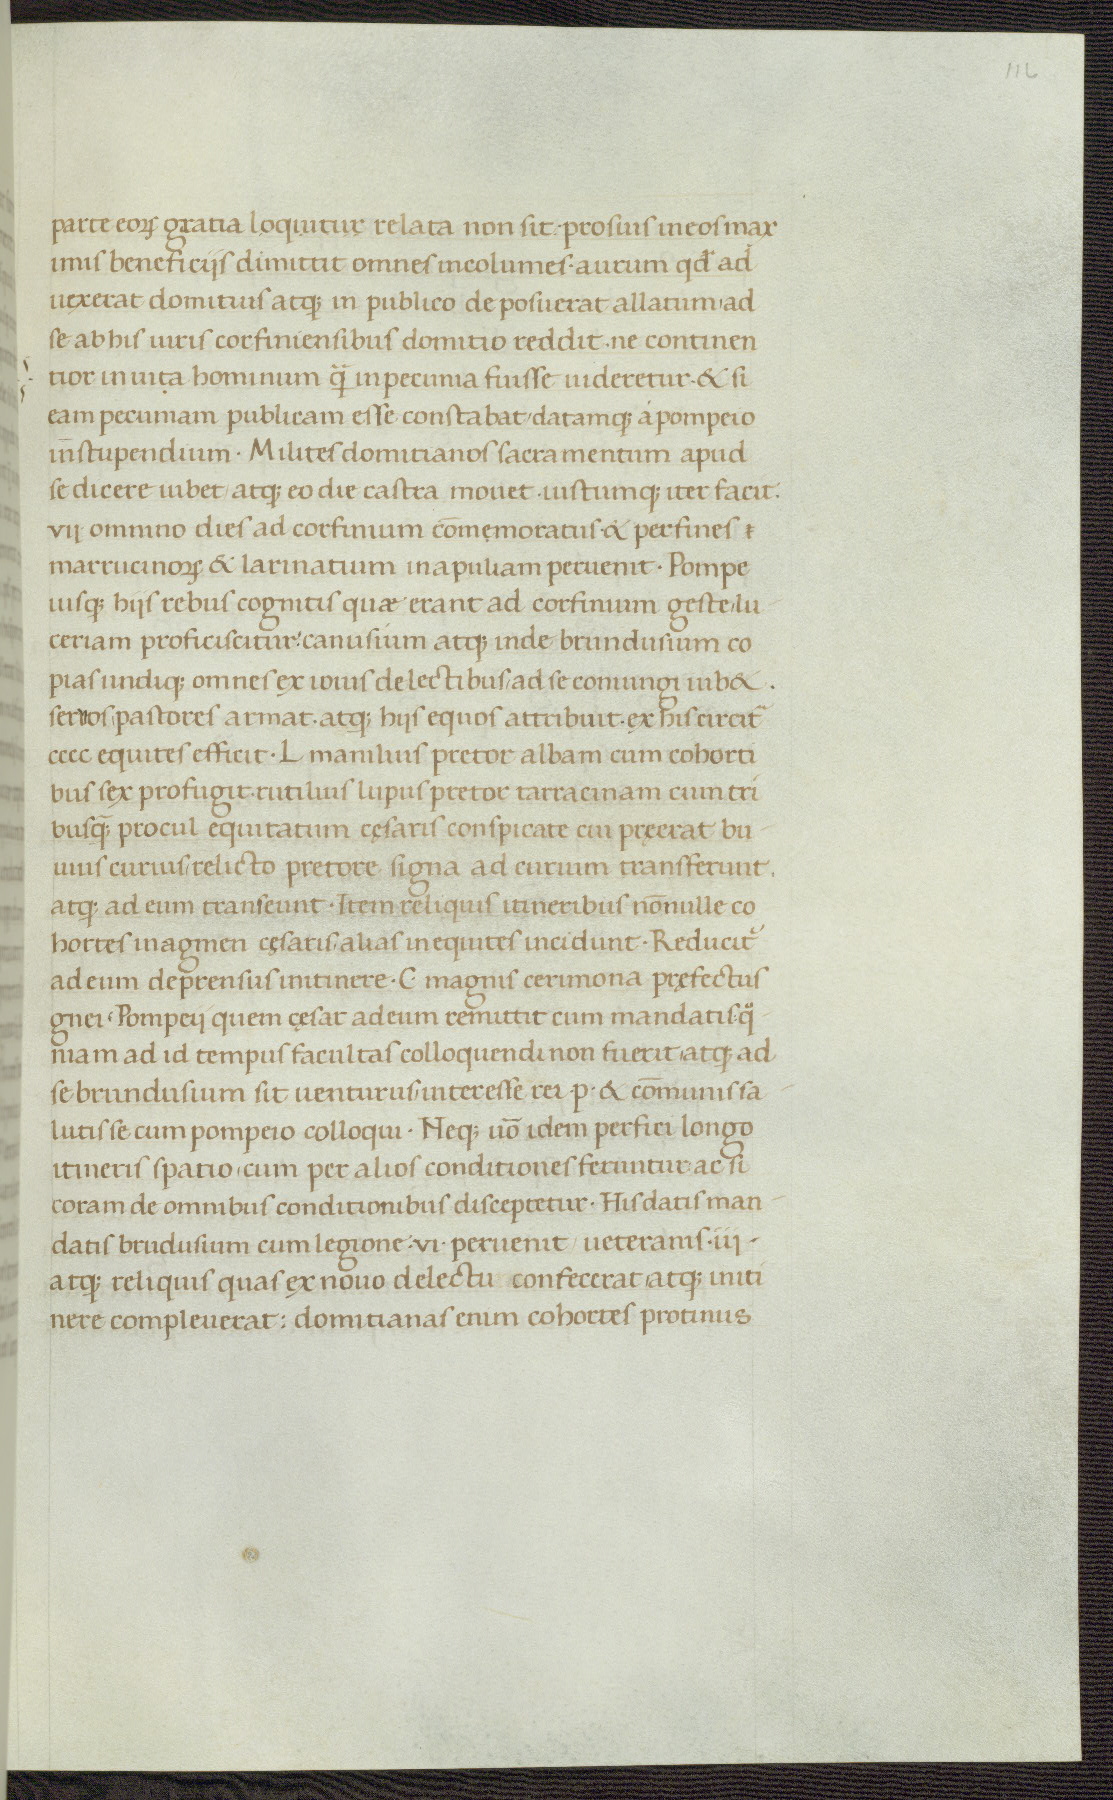 116
parte eoꝝ gratia loquitur relata non sit · prosuis in eos max
imis beneficijs dimittit omnes incolumes · aurum qđ ad
uexerat domitius atqꝫ in publico de posuerat allatum ad
se ab his uiris corfiniensibus domitio reddit · ne continen
tior in uita hominum q̃ in pecunia fuisse uideretur · & si
eam pecuniam publicam esse constabat datamqꝫ a pompeio
in stupendium · Milites domitianos sacramentum apud
se dicere iubet atqꝫ eo die castra mouet · iustumqꝫ iter facit ·
vij omnino dies ad corfinium cōmemoratus · & per fines
marrucinoꝝ & larinatium in apuliam peruenit · Pompe
iusqꝫ hijs rebus cognitis quæ erant ad corfinium geste lu
ceriam proficiscitur · canusium atqꝫ inde brundusium co
pias undiqꝫ omnes ex iouis delectibus ad se coniungi iub& ·
seruos pastores armat · atqꝫ hijs equos attribuit · ex his circit̃
cccc equites efficit · L manilius pretor albam cum cohorti
bus sex profugit · rutilius lupus pretor tarracinam cum tri
busq̃ꝫ procul equitatum cęsaris conspicate cui pręerat bu
uius curius relicto pretore signa ad curium transferunt ·
atqꝫ ad eum transeunt · Item reliquis itineribus nōnulle co
hortes in agmen cęsaris alias in equites incidunt · Reducit᷑
ad eum deprensus in itinere · C magnis cerimona pręfectus
gnei · Pompeij quem cęsar ad eum remittit cum mandatis qͦ
niam ad id tempus facultas colloquendi non fuerit atqꝫ ad
se brundusium sit uenturus interesse rei · p · & cōmunis sa
lutis se cum pompeio colloqui · Neqꝫ uō idem perfici longo
itineris spatio cum per alios conditiones feruntur ac si
coram de omnibus conditionibus disceptetur · His datis man
datis brudusium cum legione · vi · peruenit ueteranis · iij ·
atqꝫ reliquis quas ex nouo delectu confecerat atqꝫ in iti
nere compleuerat : domitianas enim cohortes protinus